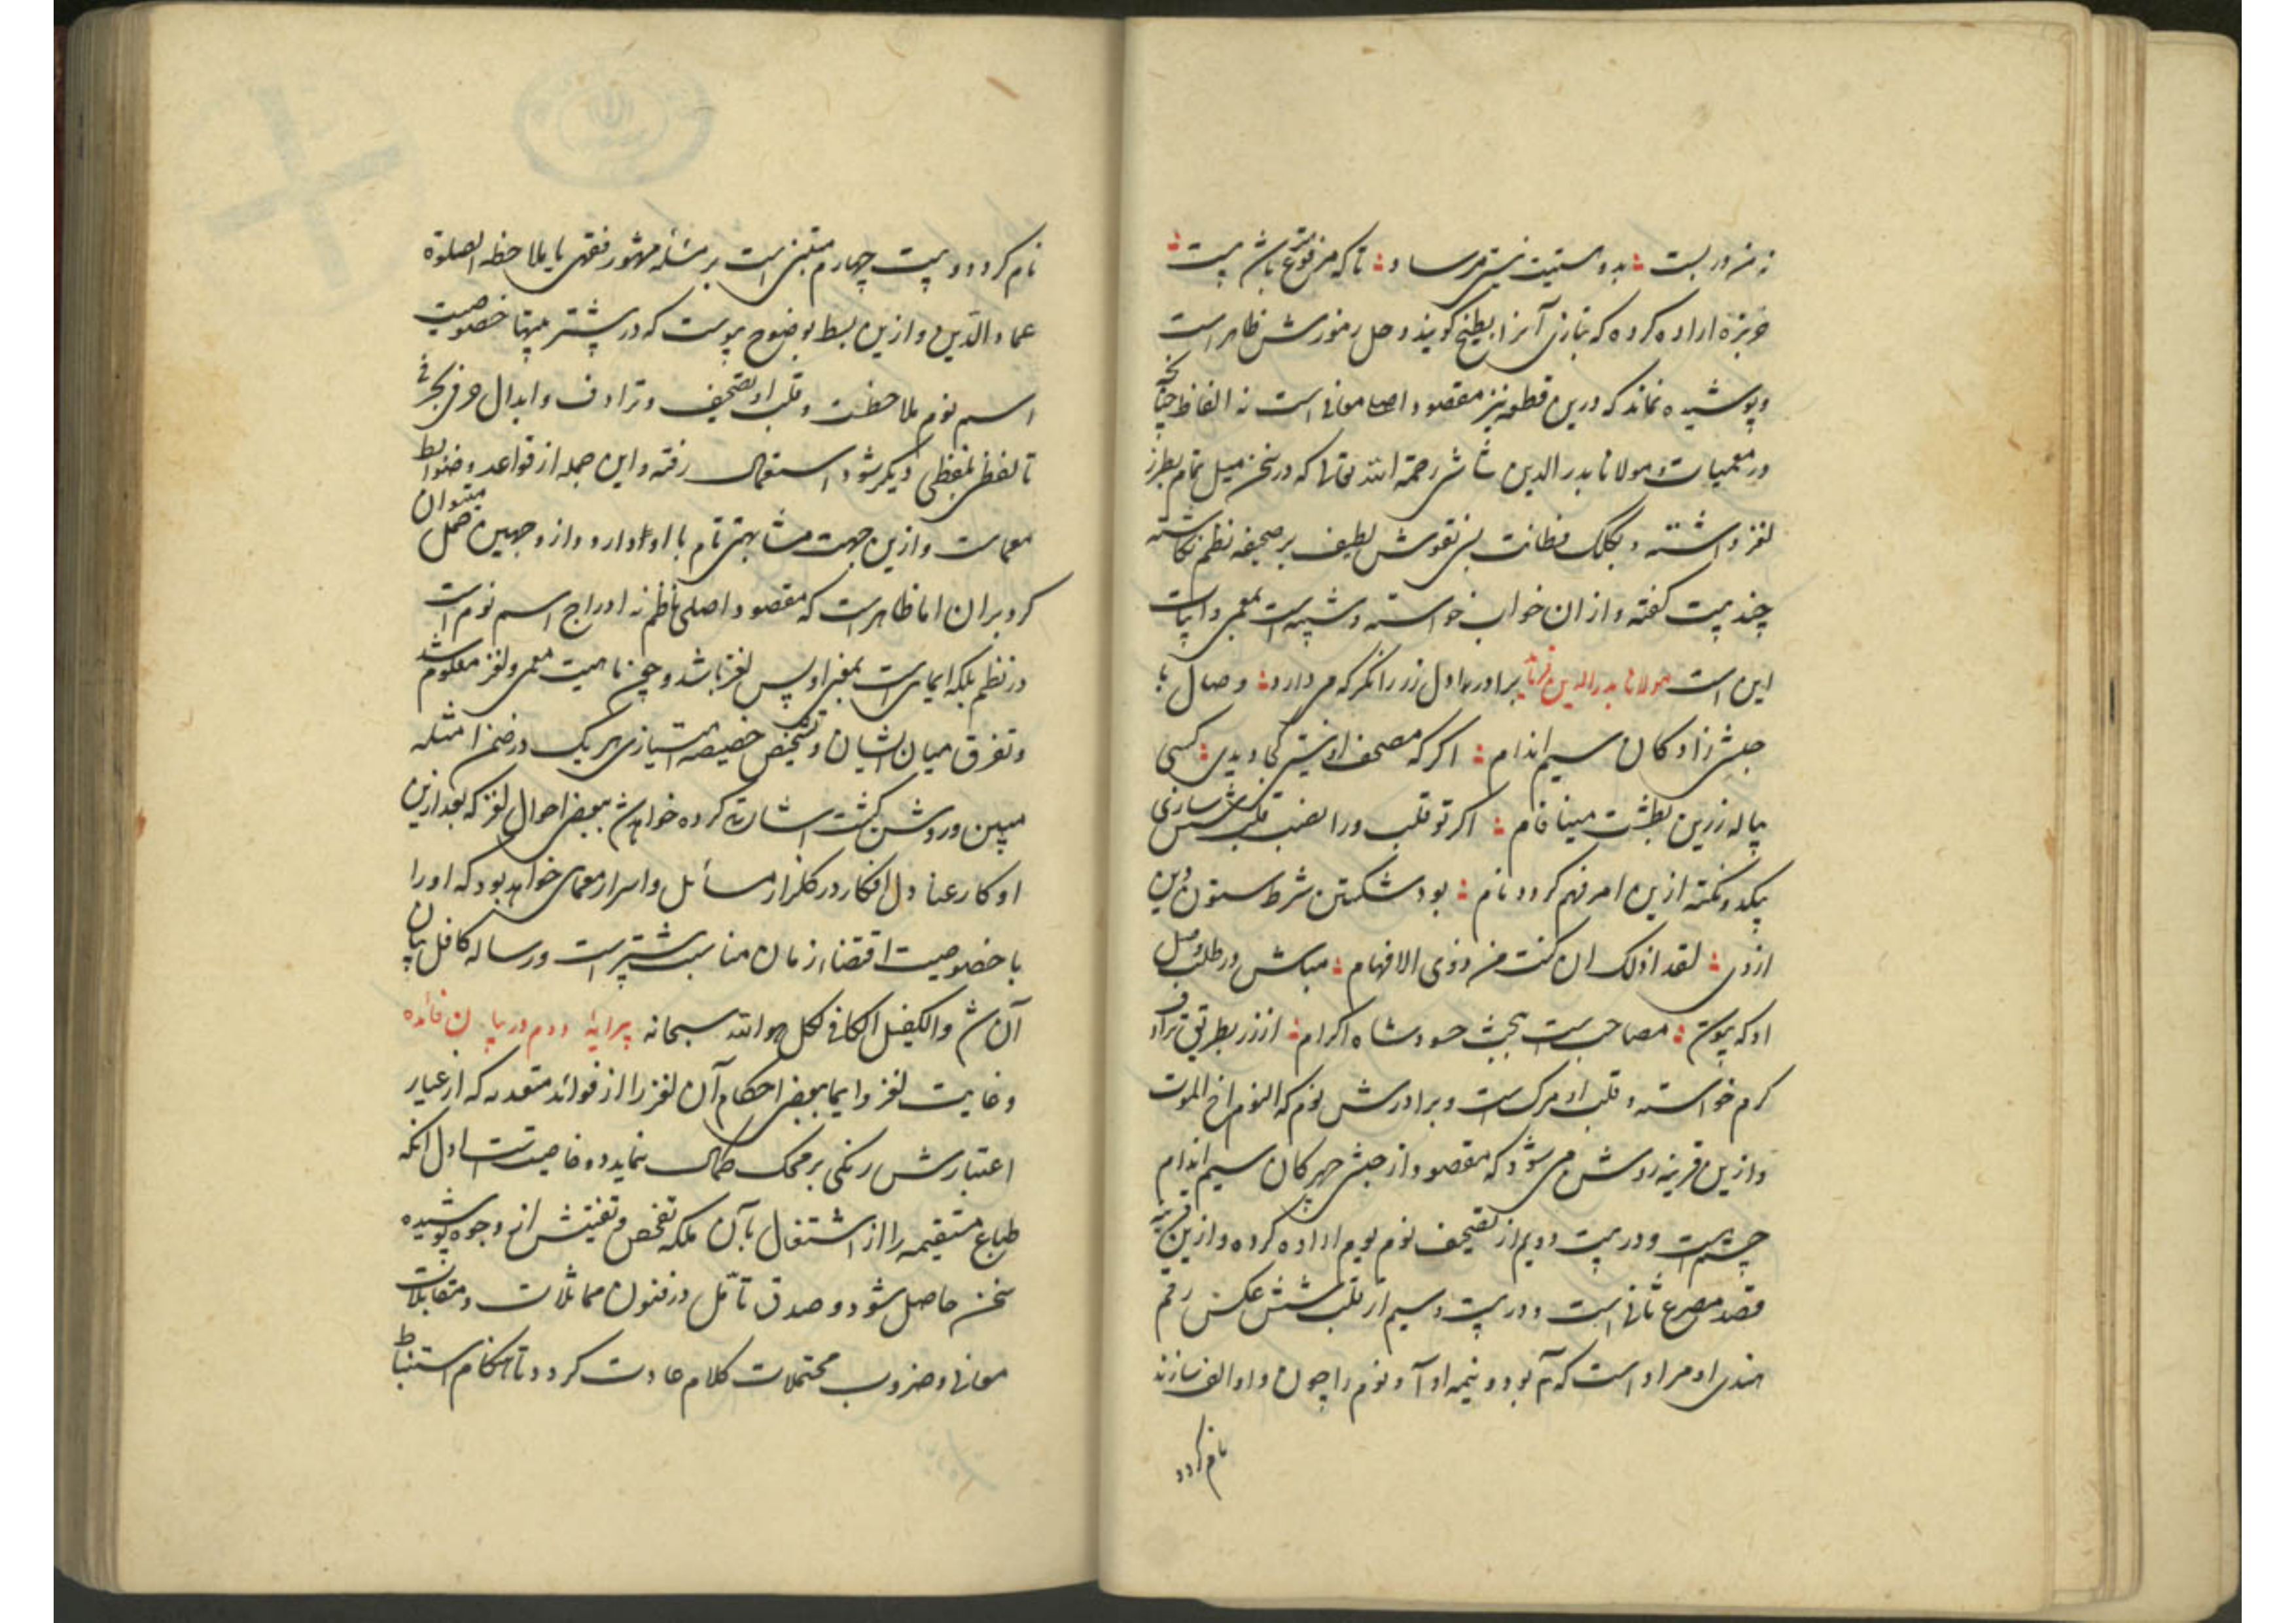 زمن در بست بدوستیت نیتی مرساد تا که من فوتم باش پست
خربزه اراده کرده که بتازی آنرا بطیخ گویند و حل رموزش ظاهر است
و پوشیده نماند که درین قطعه نیز مقصود اصلی معانی است نه الفاظ چنانکه
در معمیات و مولانا بدر الدین شاشی رحمة الله تعالی که در سخن میل تمام بطرز
لغز داشته و بکلک فطانت بسی نقوش لطیف بر صحیفه نظم نگاشته
چند بیت گفته و از ان خواب خواسته و شبیه است بمعمی و ابیات
این است مولانا بدر الدین فرماید برادر اول زر را نگر که می دارد وصال با
حبشی زادگان سیم اندام اگر که مصحف او نیستی کجا دیدی کسی
پیاله زرین بطشت مینا فام اگر تو قلب ورا نصب قلب شش سازی
بیک دو نکته ازین امر فهم گردد نام بود شکستن شرط ستون دین
ازوی لقد اذلک ان کنت من ذوی الافهام مباش در طلب وصل
او که پیوسته مصاحب است ببخت حسود شاه اکرام از زر بطریق ترادف
کرم خواسته و قلب او مرک است و برادرش نوم که النوم اخ الموت
و ازین قرینه روشن می شود که مقصود از حبشی چهرکان سیم اندام
چشم است و در بیت دویم از تصحیف نوم یوم اراده کرده و ازین قرینه
قصد مصرع ثانی است و در بیت سیم از قلب شش عکس رقم
هندی او مراد است که آ بود و نیمه او آ و نوم را چون واو الف سازند
نام گردد
نام گردد و بیت چهارم مبتنی است بر مسئله مشهور فقهی یا بملاحظه الصلوة
عماد الدین و ازین بسط بوضوح پیوست که در بیشتر بیتها خصوصیت
اسم نوم ملاحظست و قلب او تصحیف و ترادف و ابدال حرفی بحرفی
تا لفظی بلفظی دیگر شود استعمال رفته و این جمله از قواعد و ضوابط
معماست و ازین جهت مشابهتی تام با او دارد و از وجهین حمل میتوان
کرد بران اما ظاهر است که مقصود اصلی ناظم نه ادراج اسم نوم است
در نظم بلکه ایمای است بمعنی او پس لغز باشد و چون ماهیت معمی و لغز معلوم شد
و تفرق میان ایشان و تشخیص خصیصه امتیازی هر یک در ضمن امثله
مبین و روشن گشت اشارتی کرده خواهد شد ببعضی احوال لغز که بعد ازین
او کار عنادل افکار در گلزار مسائل و اسرار معمای خواهد بود که او را
با خصوصیت اقتضاء زمان مناسبت بیشتر است و رساله کافل بیان
آن شد والکفیل الکافی لکل هو الله سبحانه پیرایهٔ دوم در بیان فائده
و غایت لغز و ایما ببعضی احکام آن لغز را از فوائد متعدد که از عیار
اعتبارش رنکی بر محک کمال بنماید دو خاصیت است اول آنکه
طباع مستقیمه را از اشتغال بآن ملکه تفحص و تفتیش از وجوه پوشیده
سخن حاصل شود و صدق تأمل در فنون مماثلات و متقابلات
معانی و ضروب محتملات کلام عادت گردد تا هنگام استنباط